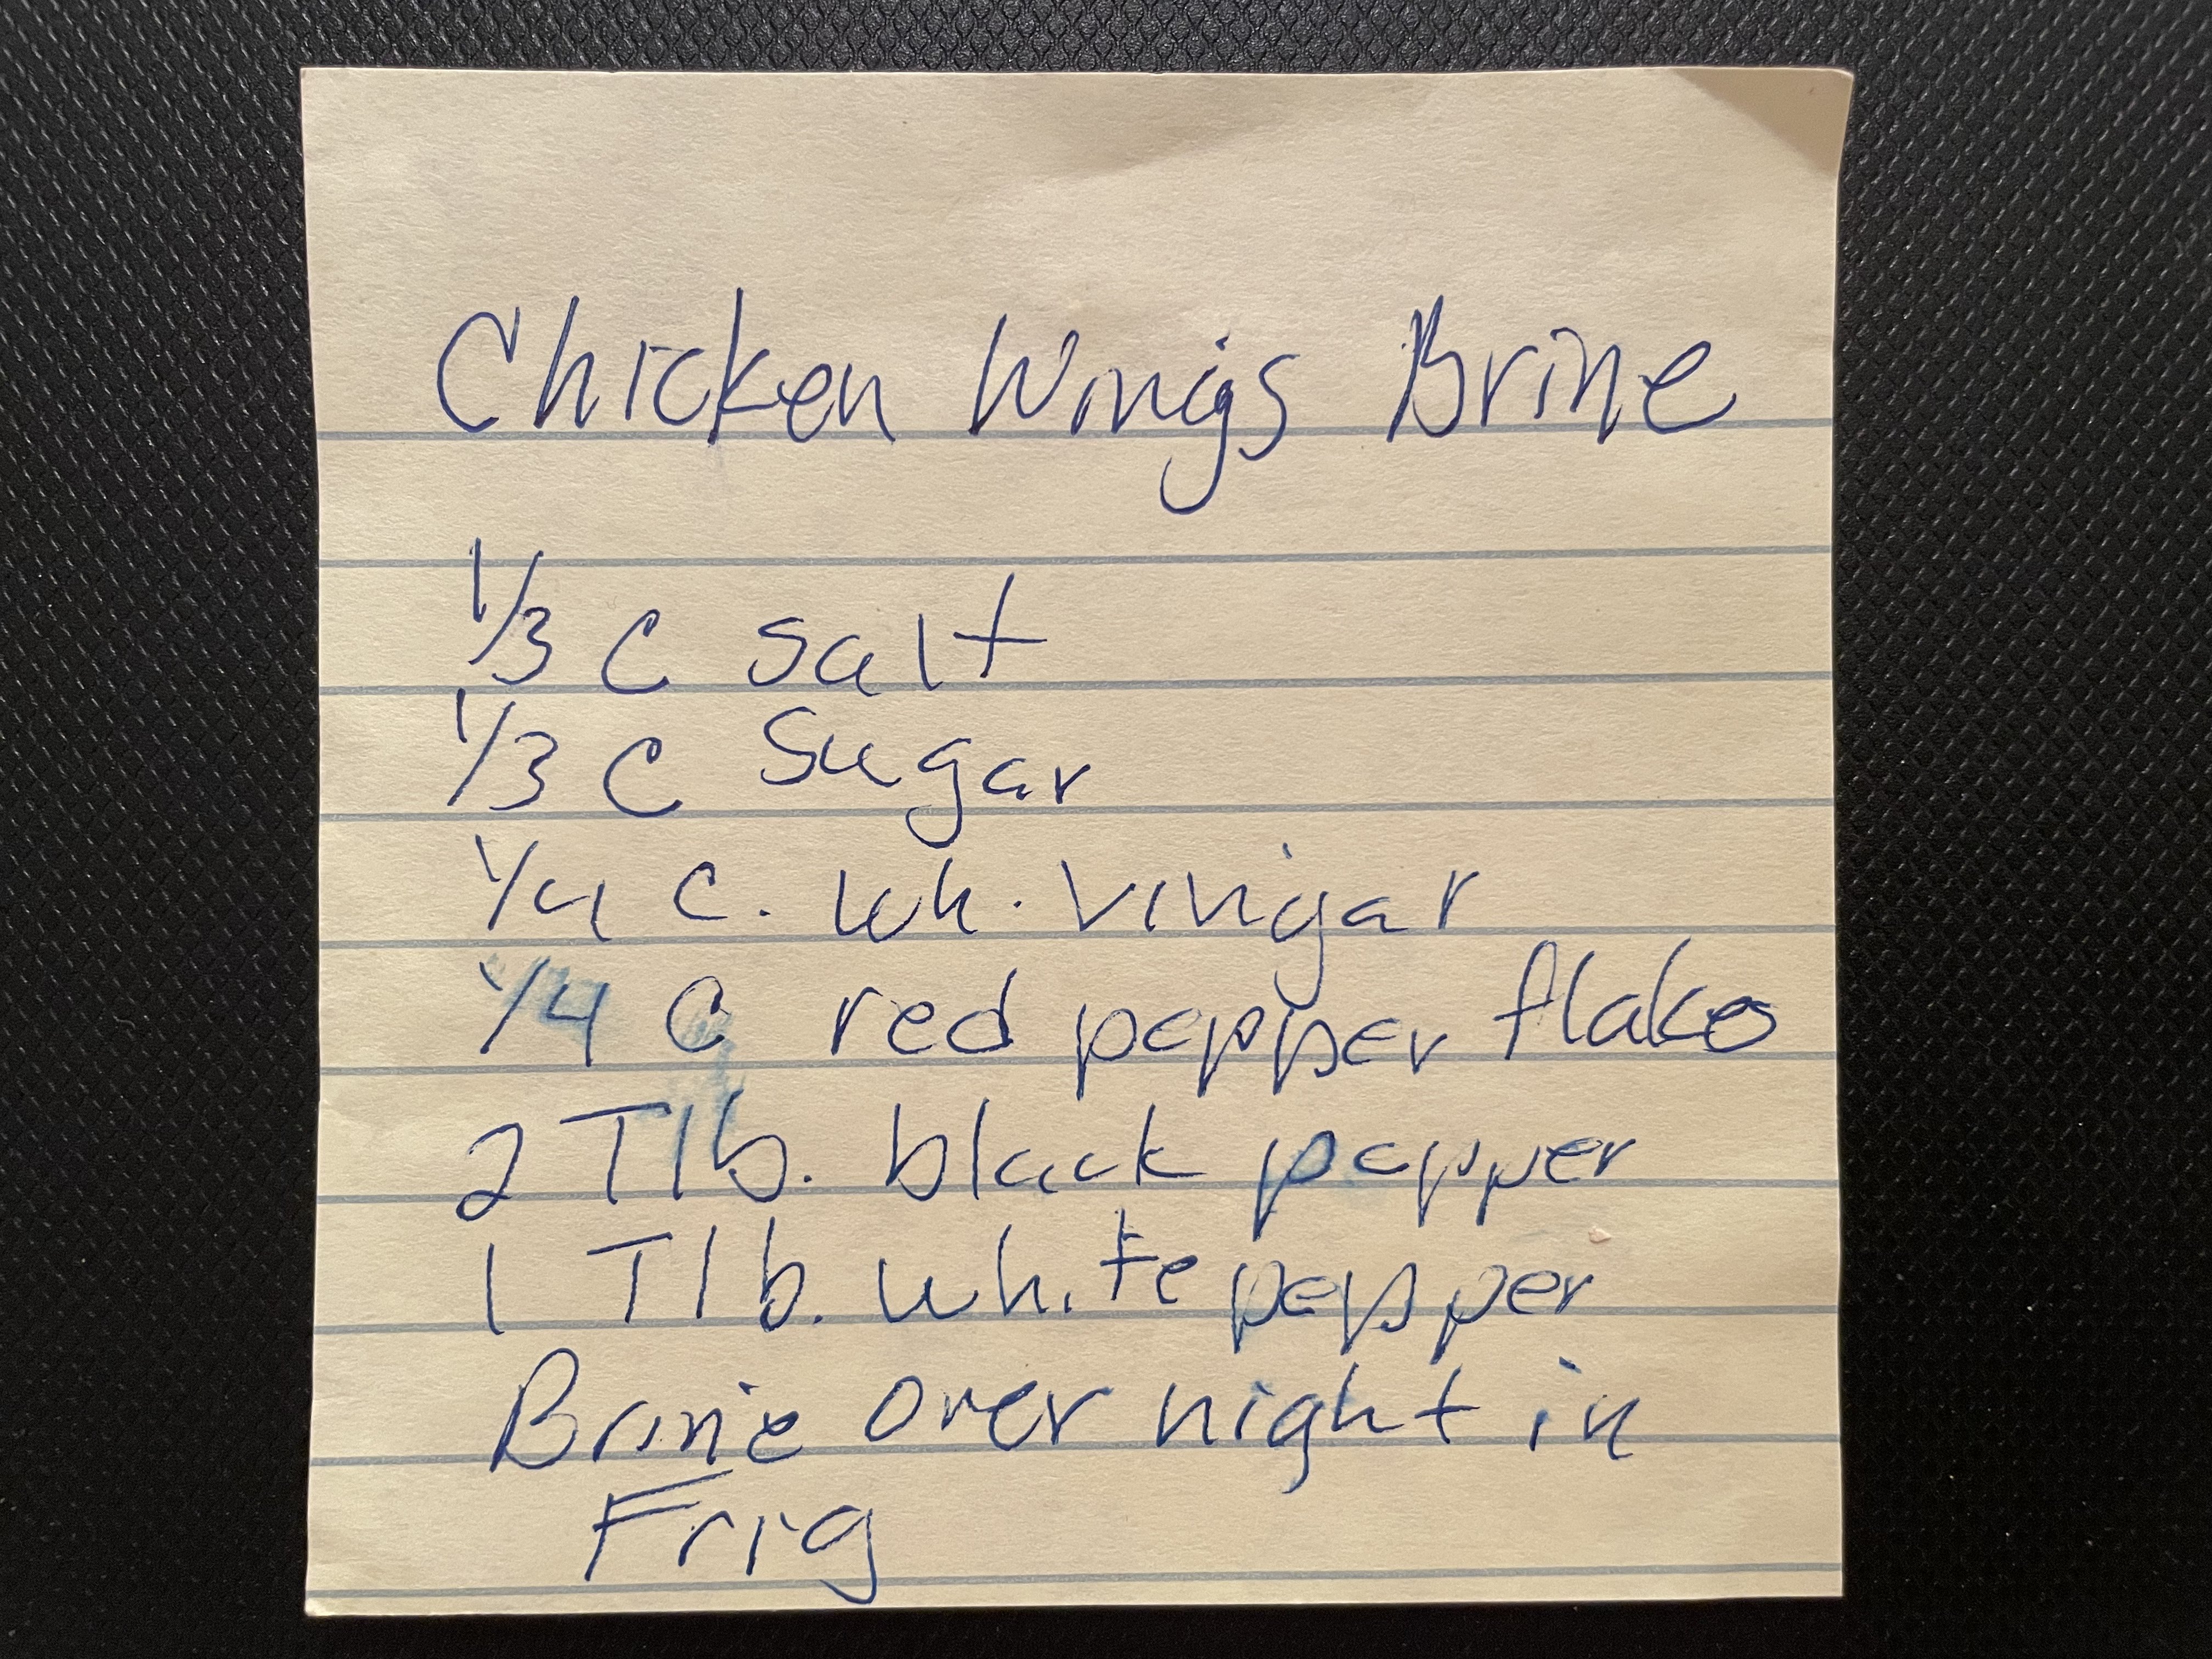 Chicken Wings Brine
1/3 C salt
1/3 C Sugar
1/4 C. wh. Vinigar
1/4 C red pepper flakes
2 Tlb. black pepper
1 Tlb. white pepper
Brine over night in
Frig